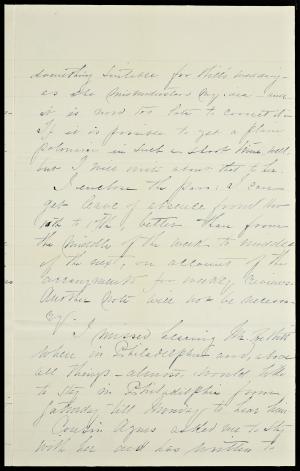 something suitable for Will's wedding
as she misunderstood my idea and
it is now too late to correct it.
If it is possible to get a plain
in such a short time, well,
but I will write about that to her.
I enclose the pass: I can
get leave of absence from the
to 17th, better than from
the middle of the week to middle
of the next, on account of the
arrangements for weekly reviews.
Another note will not be necess-
ary.
I missed hearing Mr.
when in Philadelphia and, above
all things - almost, would like
to stay in Philadelphia from
Saturday till Monday to hear him.
Cousin Agnes asked me to stay
with her and has written to